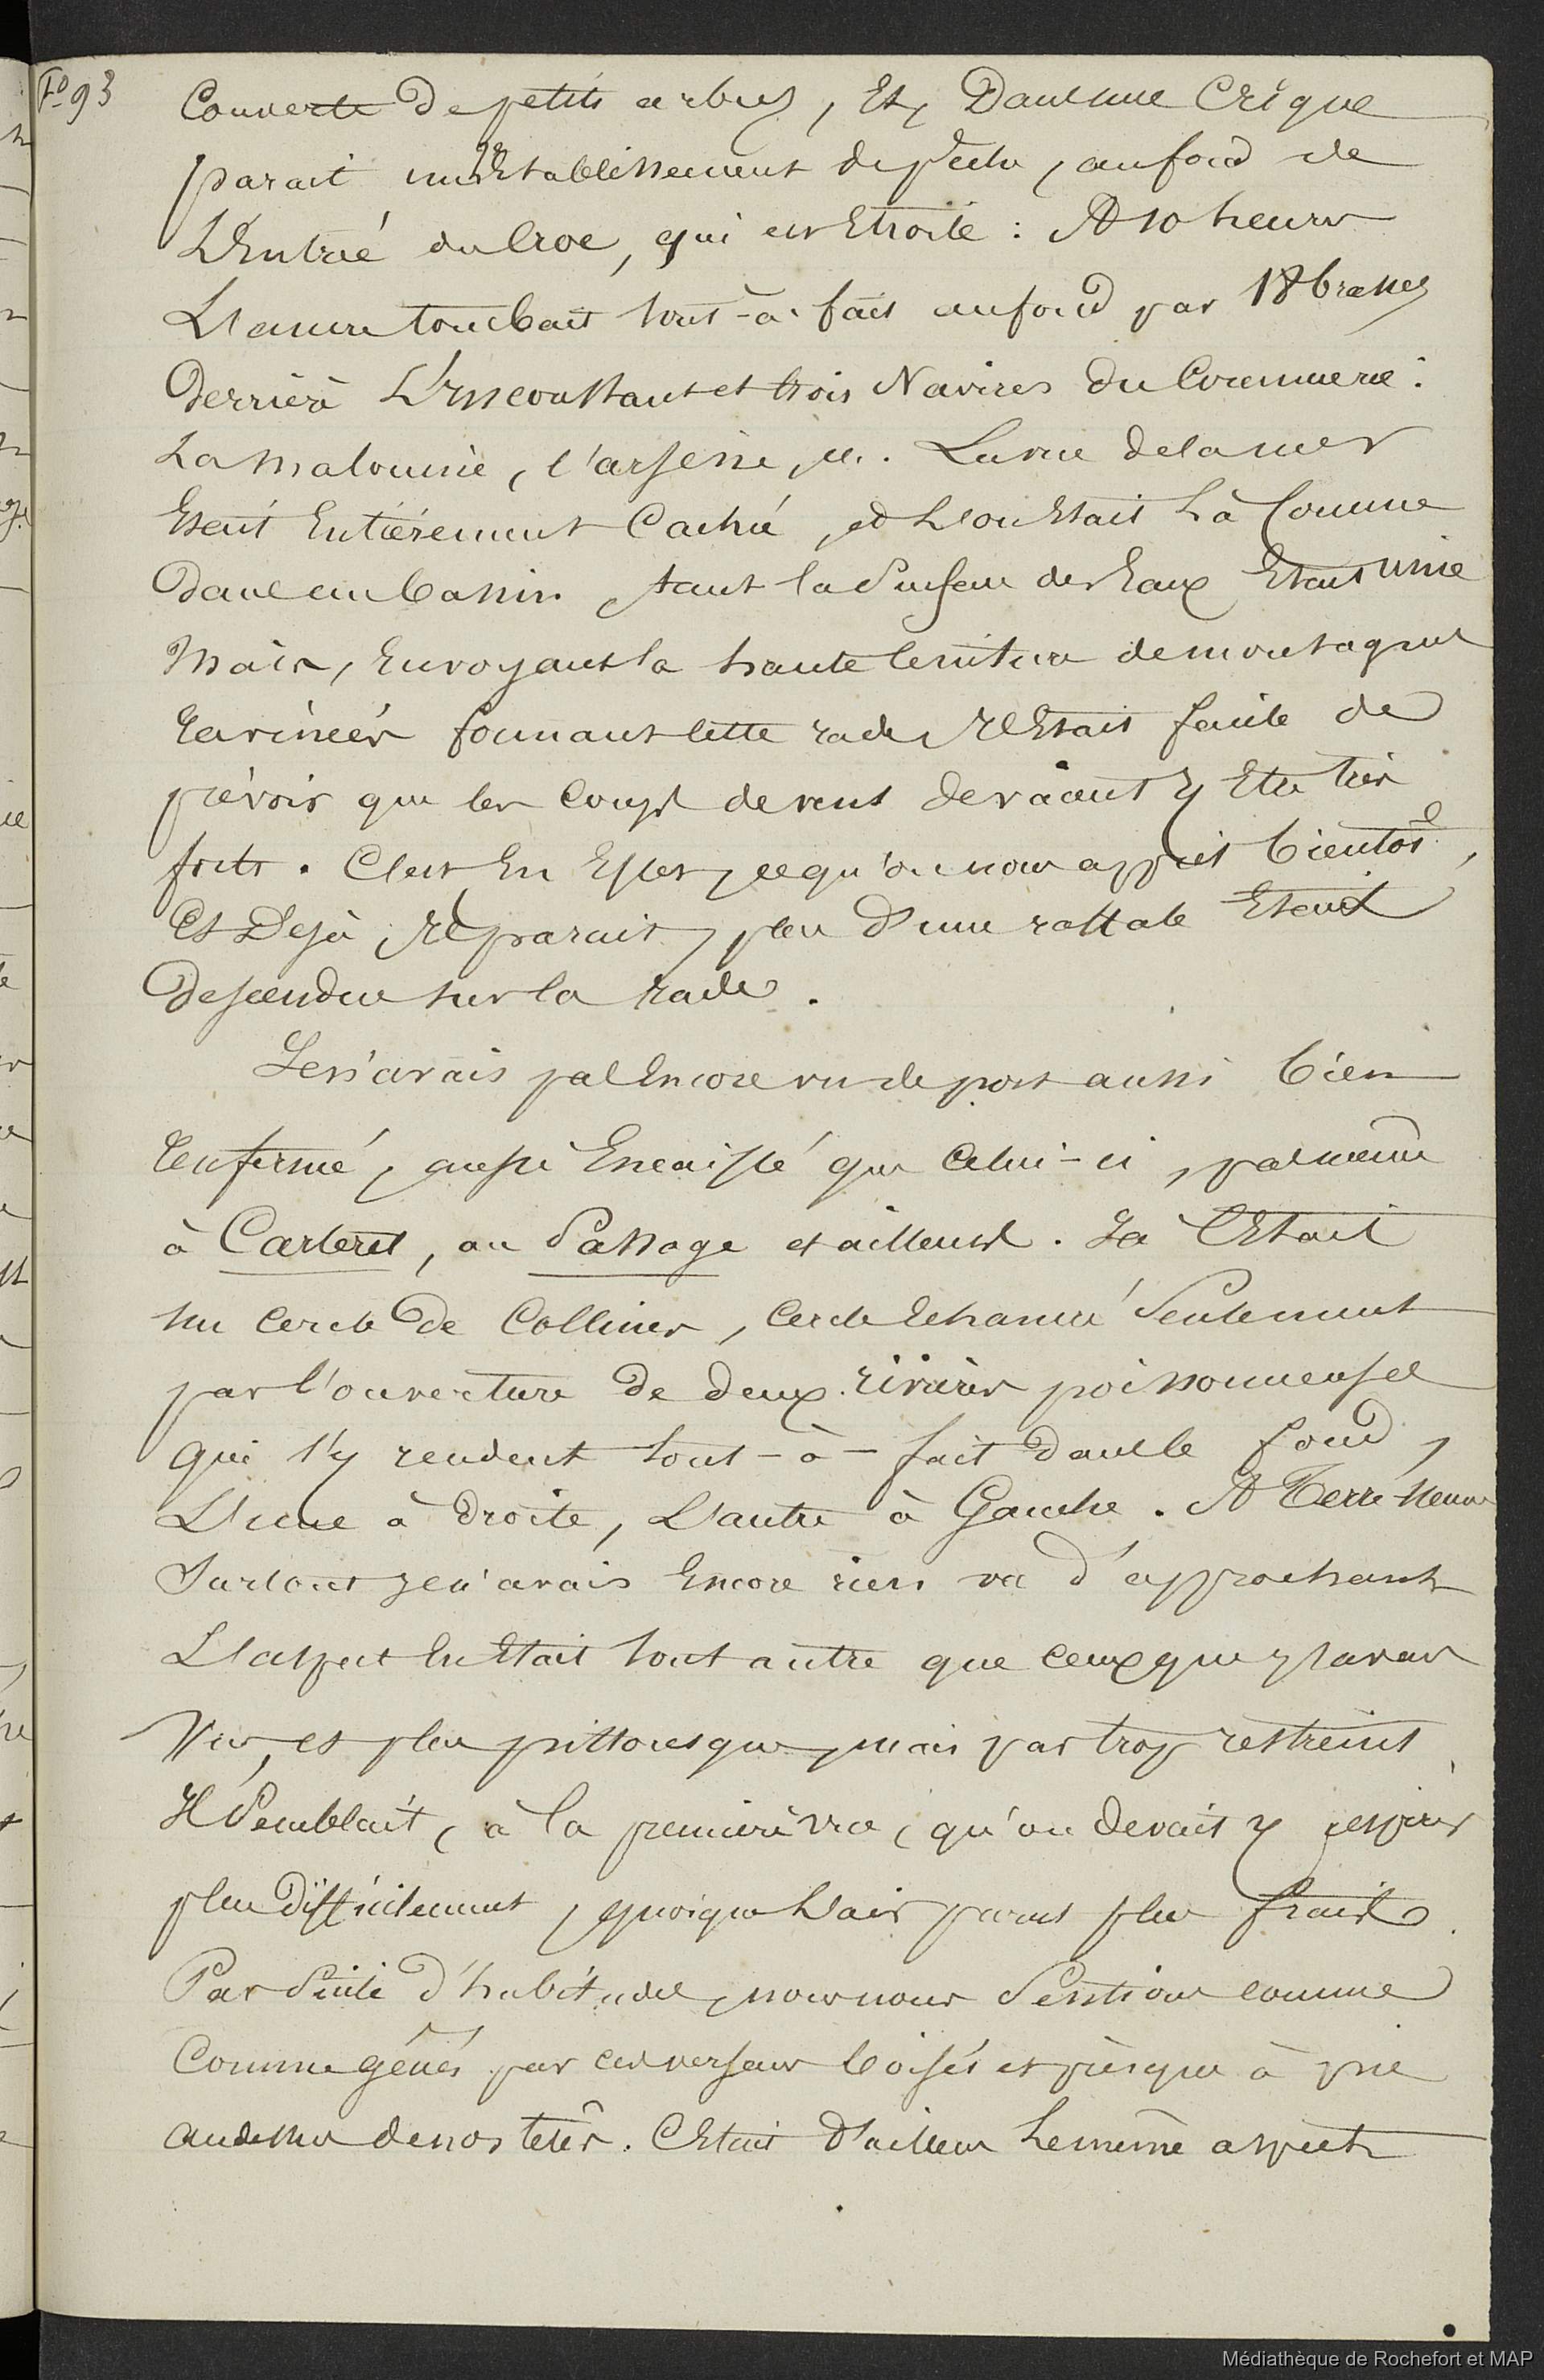 F.o 93
Couverte De petits arbres, Et, Dans une Crique
parait un Etablissement de pêche, au fond de
L'Entrée du Croc, qui est Etroite : A 10 heures
L'ancre tombait tout-à-fait au fond par 18 brasses
Derrière L'Inconstant et trois Navires du Commerce :
La malouine, l'arsène, &. La vue de la mer
Etait Entièrement Cachée, et L'on Etait Là Comme
Dans un bassin, tant la Surface des Eaux Etait unie
Mais, En voyant la haute ceinture de montagnes
ravinées formant cette rade, Il Etait facile de
prévoir que les Coups de vent devaient y Etre très
forts. C'est En Effet, ce qu'on nous apprit bientôt,
Et Déjà, Il parait, plus d'une rattale Etait
Descendue sur la rade.
Je n'avais pas Encore vu de port aussi bien
renfermé, aussi Encaissé que Celui-ci, pas même
à Carteret, au Passage et ailleurs. Là C'Etait
un Cercle De Collines, Cercle Echancré Seulement
par l'ouverture De deux rivières poissonneuses
qui s'y rendent tout-à-fait dans le fond,
L'une à Droite, L'autre à Gauche. A Terre-Neuve
Surtout je n'avais Encore rien vu d'approchant
L'aspect En Etait tout autre que ceux que j'avais
Vus, et plus pittoresque, mais par trop restreint
Il Semblait, à la première vue, qu'on devait y respirer
plus Difficilement, quoique L'air parut plus frais.
Par Suite d'habitudes, nous nous Sentions comme
Comme gênés par ces versans boisés et presque à pic
au dessus de nos têtes. C'Etait D'ailleurs Le même aspect
Médiathèque de Rochefort et MAP